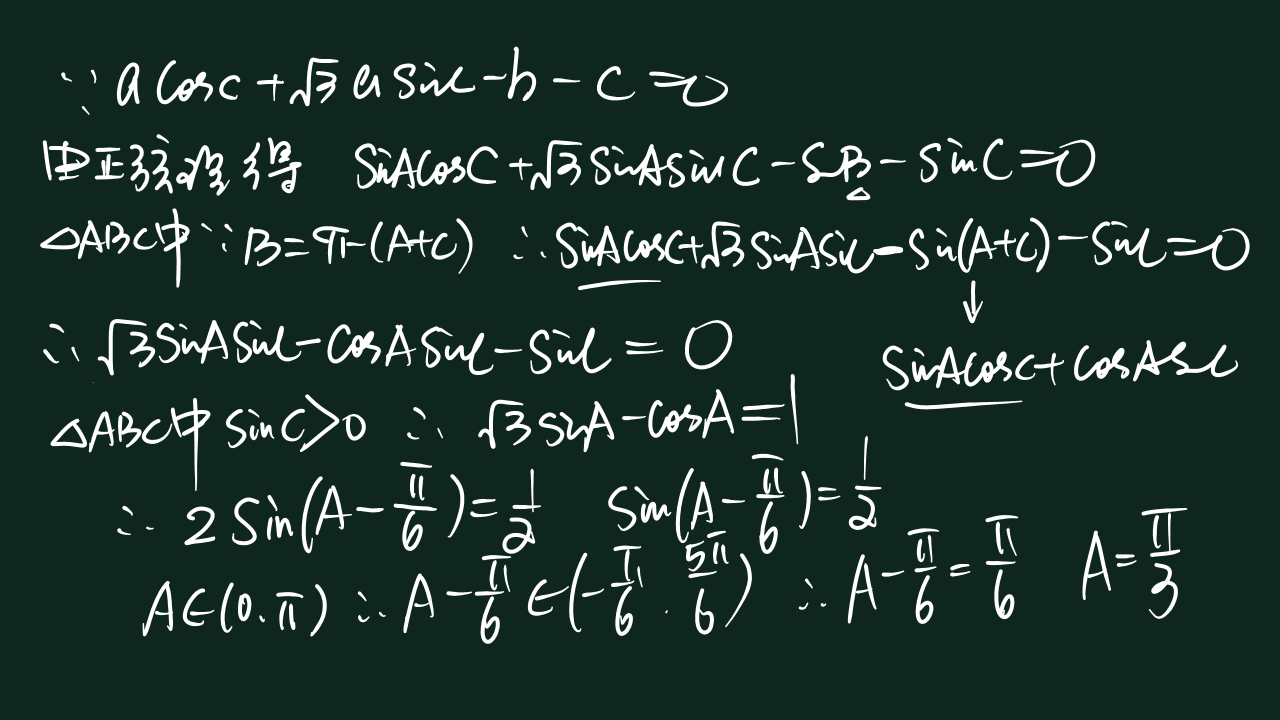 ∵ a cosC + √3 a sinC - b - c = 0
由正弦定理得 sinAcosC + √3 sinAsinC - sinB - sinC = 0
△ABC中 ∵ B = π - (A+C) ∴ sinAcosC + √3 sinAsinC - sin(A+C) - sinC = 0
↓
sinAcosC + cosAsinC
∴ √3 sinAsinC - cosAsinC - sinC = 0
△ABC中 sinC > 0 ∴ √3 sinA - cosA = 1
∴ 2 sin(A - π/6) = 1/2 sin(A - π/6) = 1/2
A∈(0.π) ∴ A - π/6 ∈ (-π/6 . 5π/6) ∴ A - π/6 = π/6 A = π/3